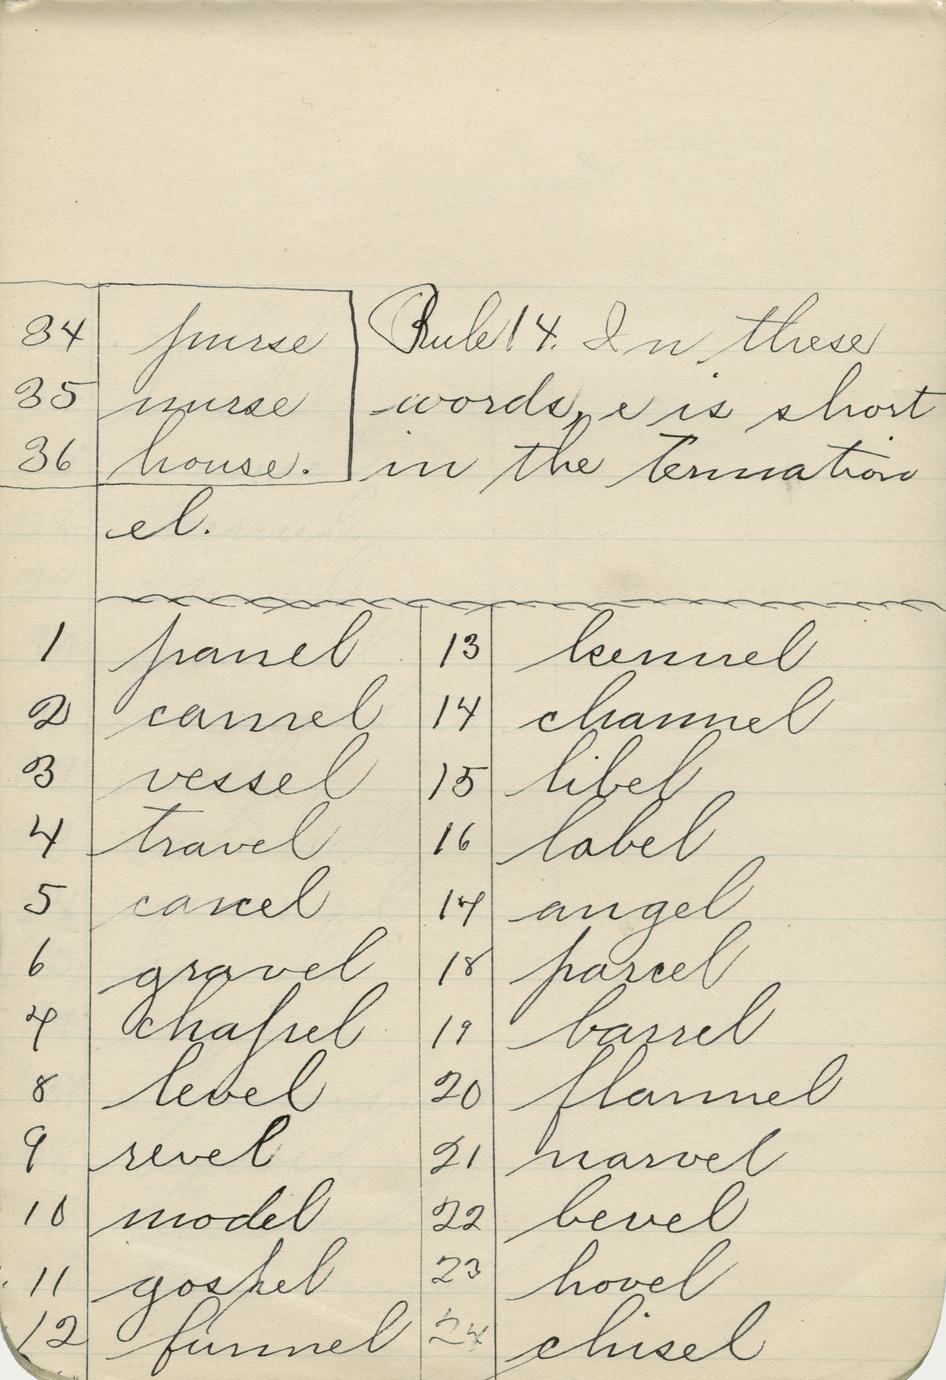 34 purse Rule 14. In these
35 nurse words, e is short
36 house. in the Termation
el.
1 panel 13 kennel
2 camel 14 channel
3 vessel 15 libel
4 travel 16 label
5 cancel 17 angel
6 gravel 18 parcel
7 chapel 19 barrel
8 level 20 flannel
9 revel 21 marvel
10 model 22 bevel
11 gospel 23 hovel
12 funnel 24 chisel